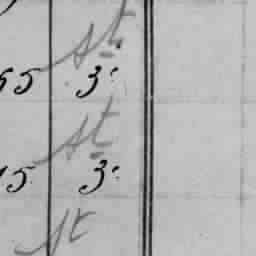 st.
55 3.
st
15 3.
st